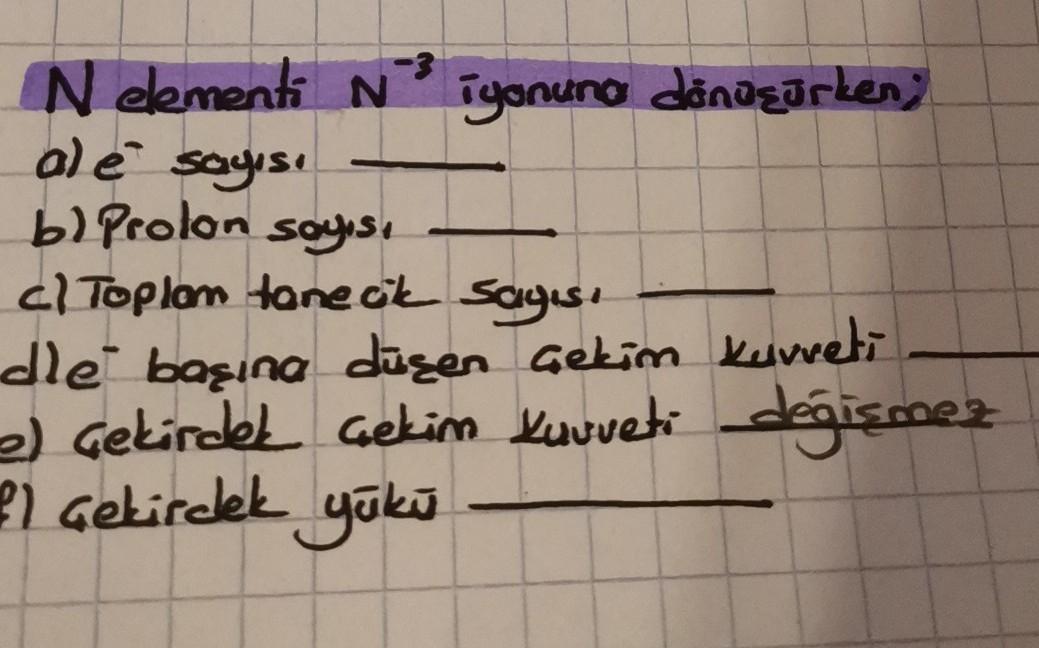 N elementi N⁻³ iyonuna dönüşürken;
a) e⁻ sayısı ______
b) Proton sayısı ______
c) Toplam tanecik sayısı ______
d) e⁻ başına düşen çekim kuvveti ______
e) Çekirdek çekim kuvveti değişmez
f) Çekirdek yükü ______